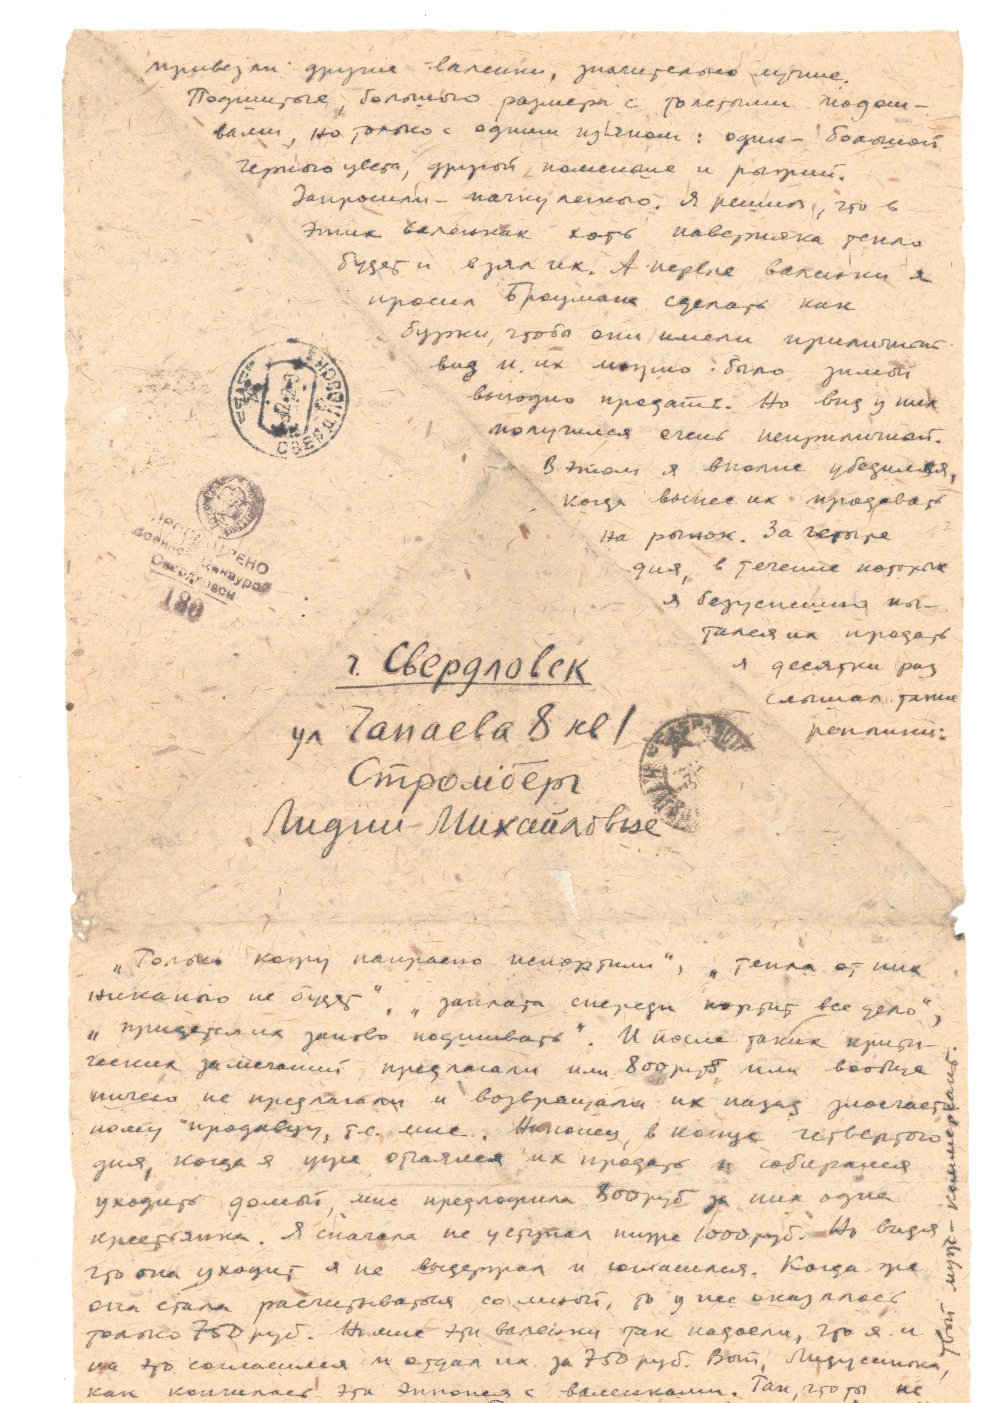 привезли другие валенки, значительно лучше.
Подшитые, большого размера с толстыми подош-
вами, но только с одним изъяном: один - большой
черного цвета, другой поменьше и рыжий.
Запросили - пачку легкого. Я решил, что в
этих валенках хоть наверняка тепло
будет и взял их. А первые валенки я
просил Броумана сделать как
бурки, чтобы они имели приличный
вид и их можно было зимой
выгодно продать. Но вид у них
получился очень неприличный.
В этом я вполне убедился,
когда вынес их продавать
на рынок. За четыре
дня, в течение которых
я безуспешно пы-
тался их продать
я десятки раз
слышал такие
реплики:
СВЕРДЛОВСК
ПРОСМОТРЕНО
Военной Цензурой
Свердловск
180
г. Свердловск
ул Чапаева 8 кв 1
Стромберг
Лидии Михайловне
„Только кожу напрасно испортили", „тепла от них
никакого не будет", „заплата спереди портит все дело",
„придется их заново подшивать". И после таких крити-
ческих замечаний предлагали или 800 руб или вообще
ничего не предлагали и возвращали их назад злосчаст
ному продавцу, т.е. мне. Наконец, в конце четвертого
дня, когда я уже отчаялся их продать и собирался
уходить домой, мне предложила 800 руб за них одна
крестьянка. Я сначала не уступал ниже 1000 руб. Но видя
что она уходит я не выдержал и согласился. Когда же
она стала расчитываться со мной, то у нее оказалось
только 750 руб. Но мне эти валенки так надоели, что я и
на это согласился и отдал их за 750 руб. Вот, Лидусенька,
как кончилась эта эпопея с валенками. Так, что ты не
Твой муж - коммерсант.